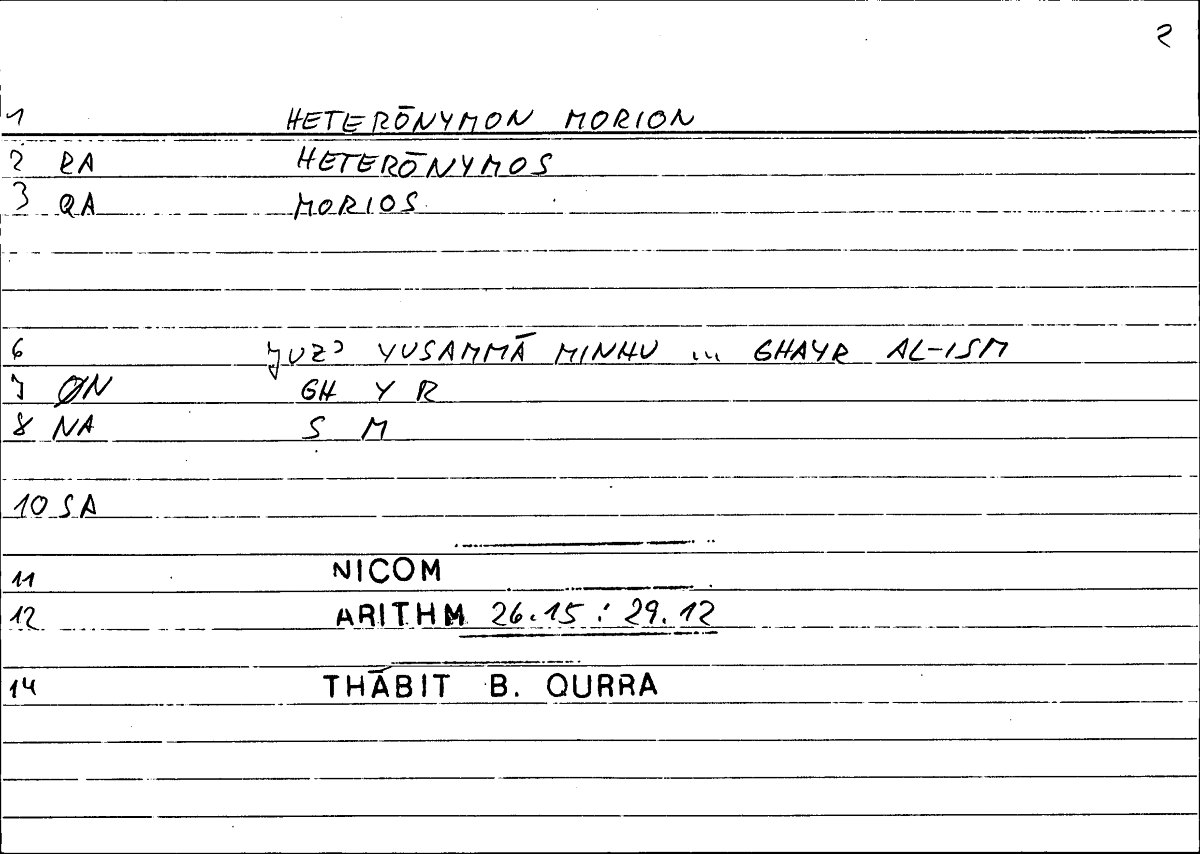 2
1 HETERŌNYMON MORION
2 RA HETERŌNYMOS
3 QA MORIOS
6 JUZʾ YUSAMMĀ MINHU ... GHAYR AL-ISM
7 ØN GH Y R
8 NA S M
10 SA
11 NICOM
12 ARITHM 26.15 : 29.12
14 THĀBIT B. QURRA